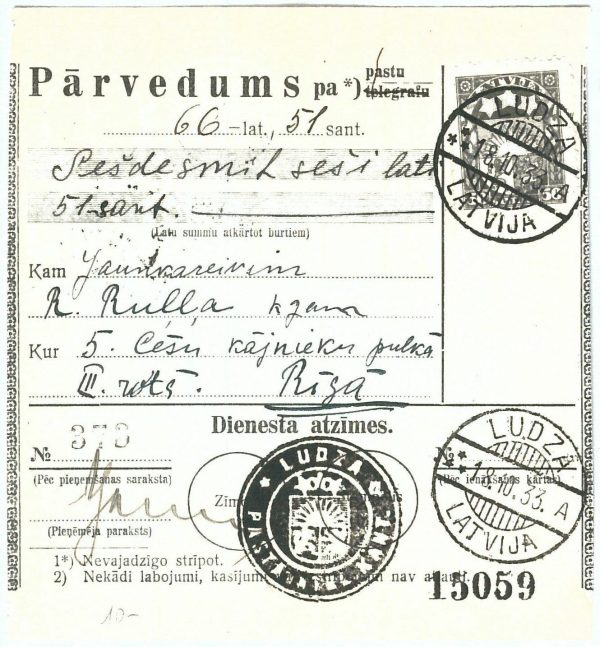 Pārvedums pa*) pastu telegrafu
66 – lat., 51 sant.
Sešdesmit seši lati
51 sant.
(Latu summu atkārtot burtiem)
Kam Jaunkareivim
R. Rulļa kzam
Kur 5. Cēsu kājnieku pulkā
III. rotā. Rīgā
LATVIJA
LUDZA
18.10.33. A
LATVIJA
Dienesta atzīmes.
№ 373
(Pēc pieņemšanas saraksta)
(Pieņēmēja paraksts)
LUDZA
Zīm
№
(Pēc ienākšanas kārtas)
LUDZA
18.10.33. A
LATVIJA
1*) Nevajadzīgo strīpot.
2) Nekādi labojumi, kasījumi nav atļauti.
15059
10-